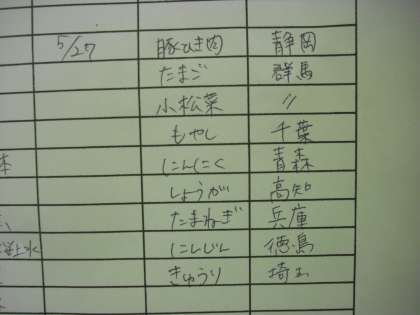 5/27 豚ひき肉 静岡
たまご 群馬
小松菜 〃
もやし 千葉
にんにく 青森
しょうが 高知
たまねぎ 兵庫
にんじん 徳島
きゅうり 埼玉